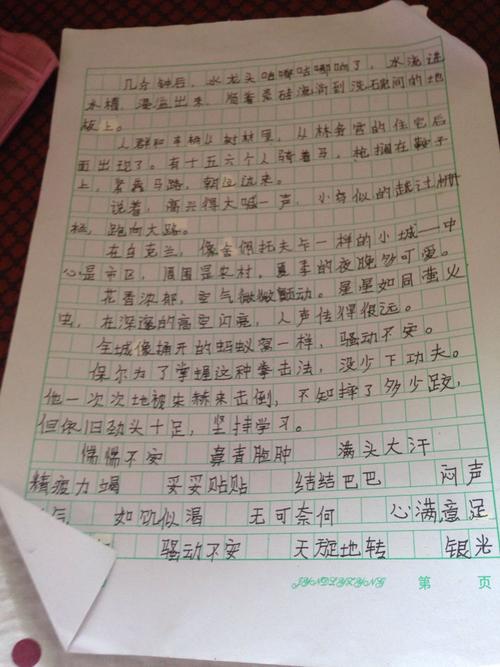 几分钟后，水龙头咕嘟咕嘟响了，水流进
水槽，漫溢出来，顺着瓷砖流淌到洗碗间的地
板上。
人群和车辆从树林里，从林务官的住宅后
面出现了。有十五六个人骑着马，枪搁在鞍子
上，紧靠马路，朝这边来。
说着，高兴得大喊一声，小马似的越过栅
栏，跑向大路。
在乌克兰，像舍佩托夫卡一样的小城——中
心是市区，周围是农村，夏季的夜晚多可爱。
花香浓郁，空气微微颤动。星星如同萤火
虫，在深邃的高空闪亮，人声传得很远。
全城像捅开的蚂蚁窝一样，骚动不安。
保尔为了掌握这种拳击法，没少下功夫。
他一次次地被朱赫来击倒，不知摔了多少跤，
但依旧劲头十足，坚持学习。
惴惴不安 鼻青脸肿 满头大汗
精疲力竭 妥妥贴贴 结结巴巴 闷声
气 如饥似渴 无可奈何 心满意足
骚动不安 天旋地转 银光
第 页